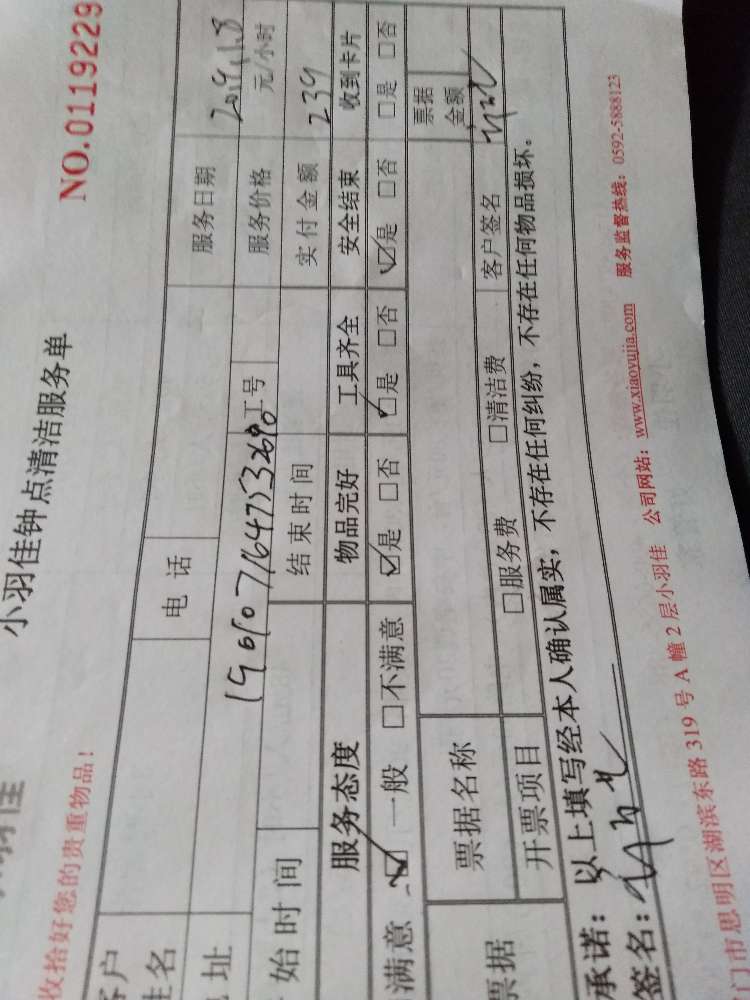 小羽佳钟点清洁服务单
NO.0119229
收拾好您的贵重物品!
客户姓名 电话 服务日期 2019.1.8
地址 服务价格 元/小时
190107164753260 工号
始时间 结束时间 实付金额 239
服务态度 物品完好 工具齐全 安全结束 收到卡片
满意 ☑一般 □不满意 ☑是 □否 ☑是 □否 ☑是 □否 □是 □否
票据 票据名称 票据金额
开票项目 □服务费 □清洁费 客户签名
承诺:以上填写经本人确认属实,不存在任何纠纷,不存在任何物品损坏。
签名:
门市思明区湖滨东路 319 号 A 幢 2 层小羽佳 公司网站:www.xiaoyujia.com 服务监督热线:0592-5888123